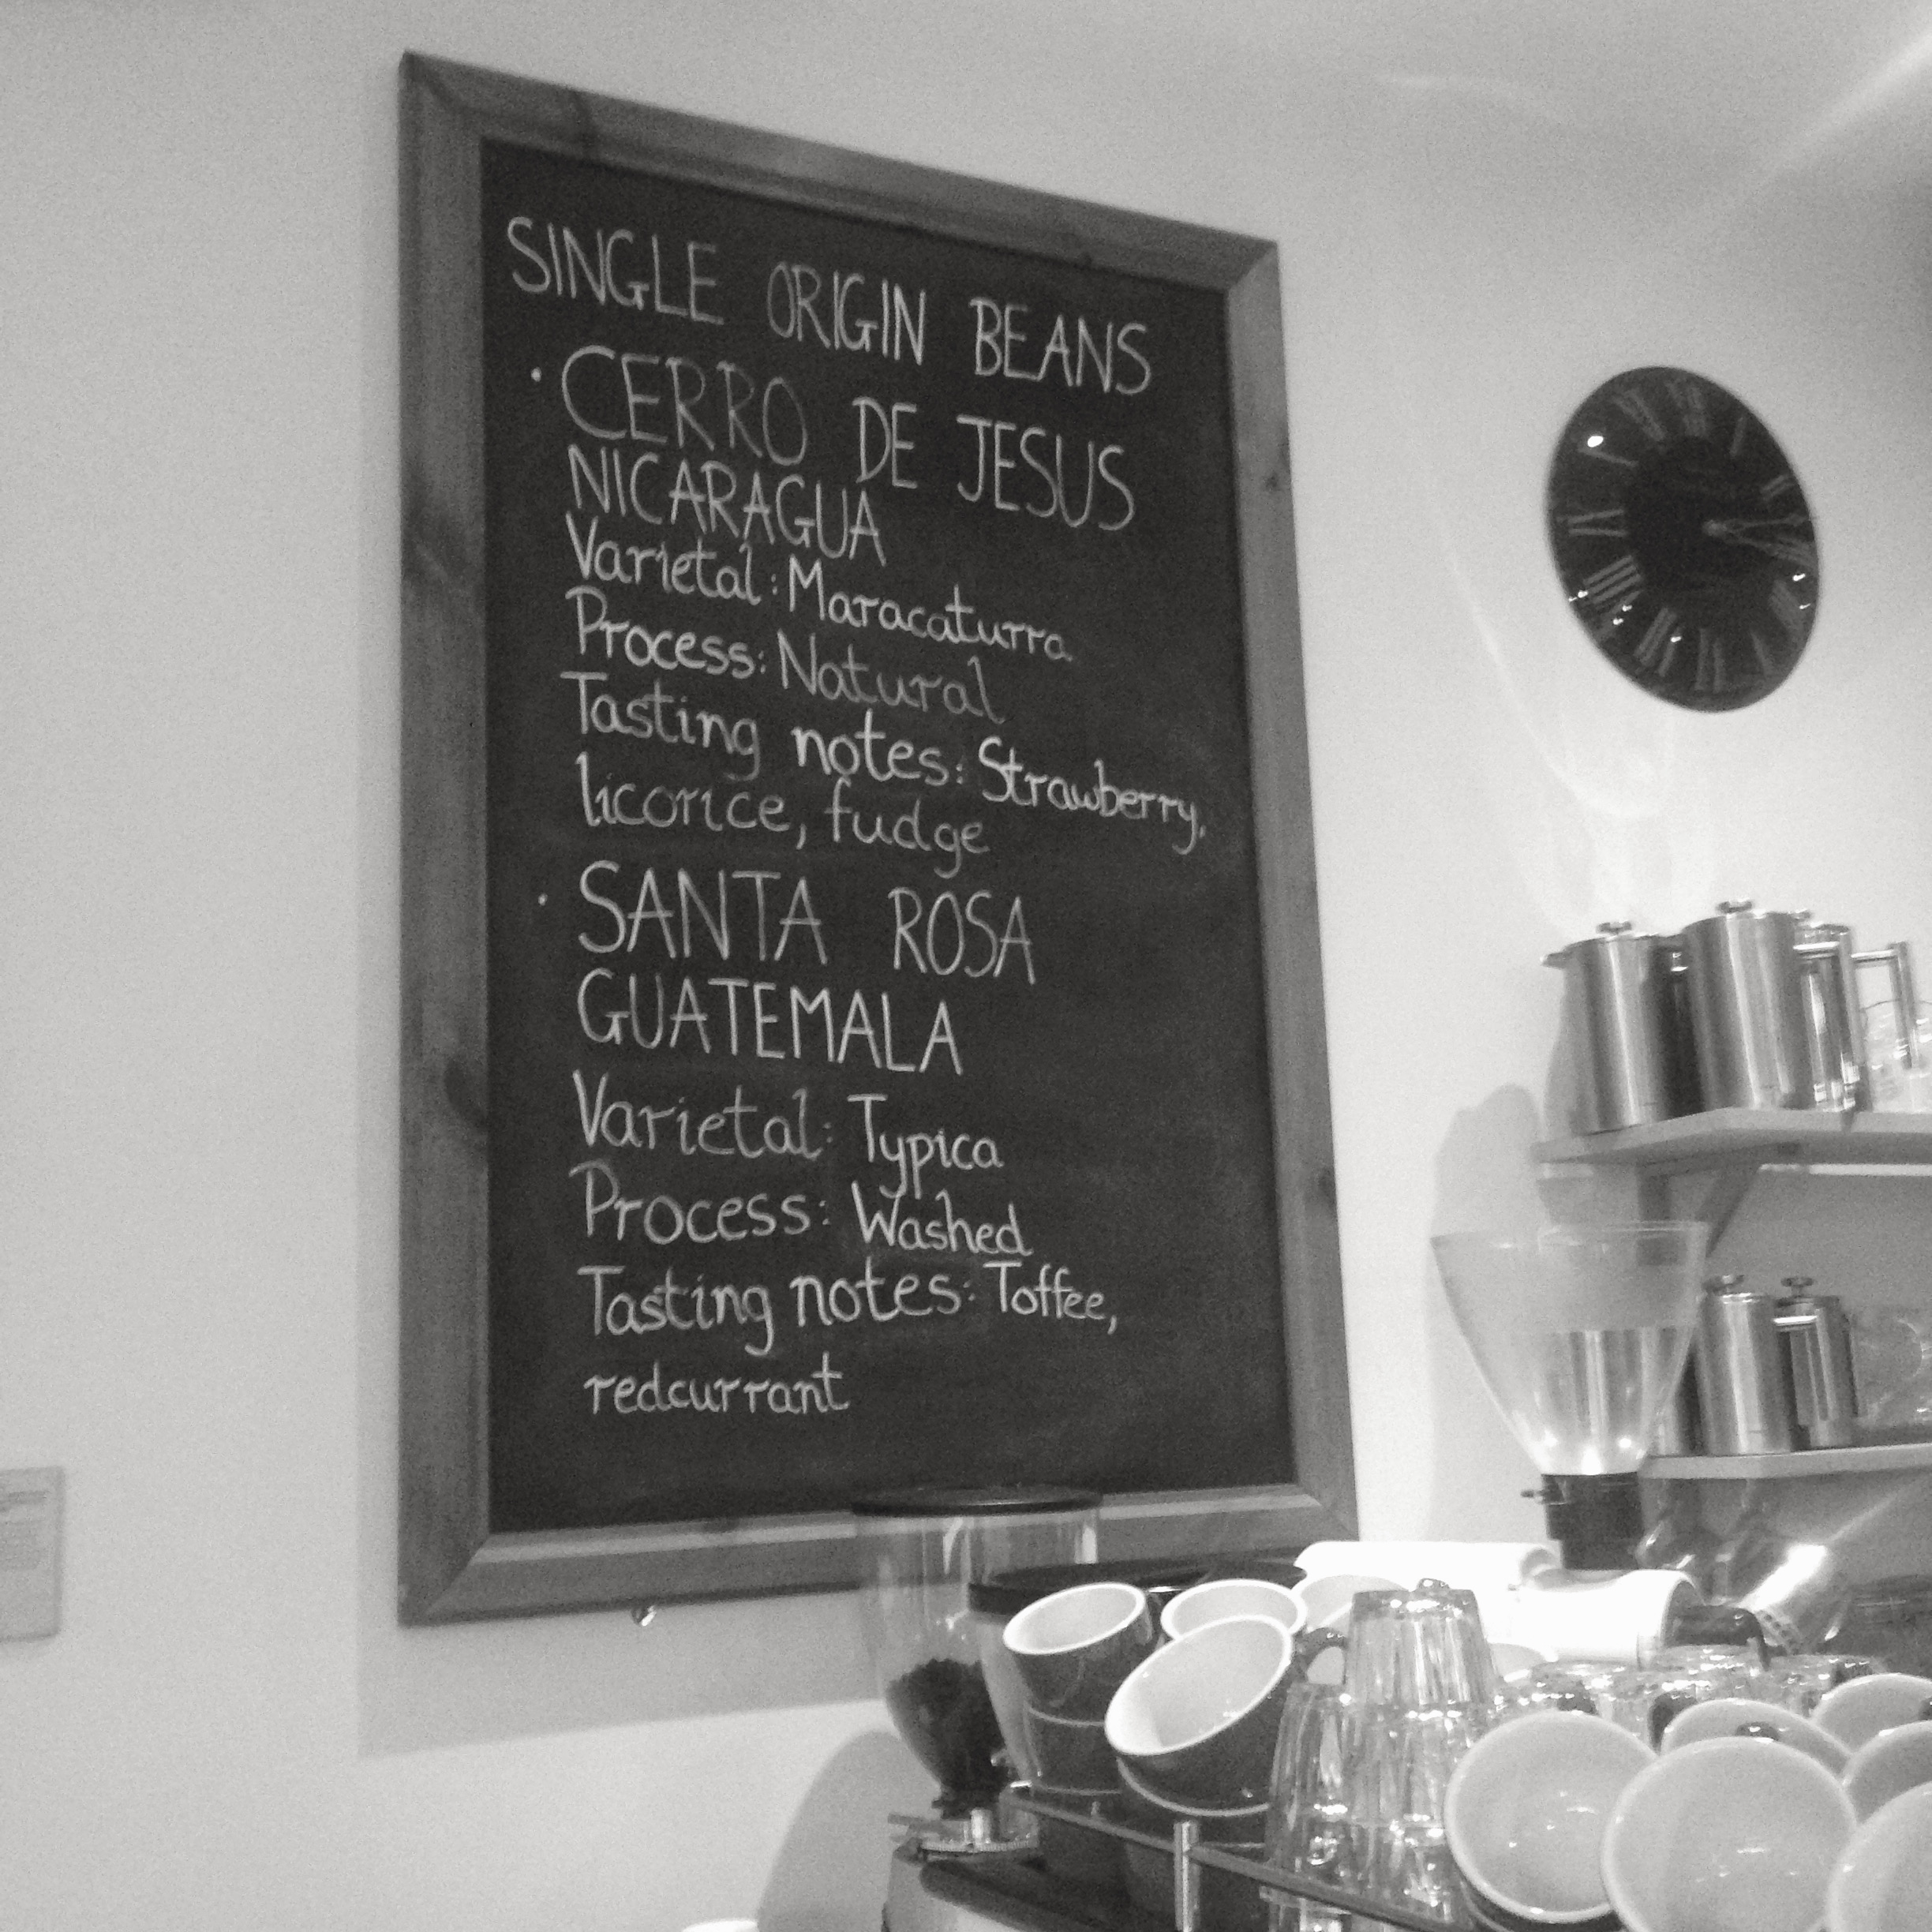 SINGLE ORIGIN BEANS
· CERRO DE JESUS
NICARAGUA
Varietal: Maracaturra
Process: Natural
Tasting notes: Strawberry,
licorice, fudge
· SANTA ROSA
GUATEMALA
Varietal: Typica
Process: Washed
Tasting notes: Toffee,
redcurrant